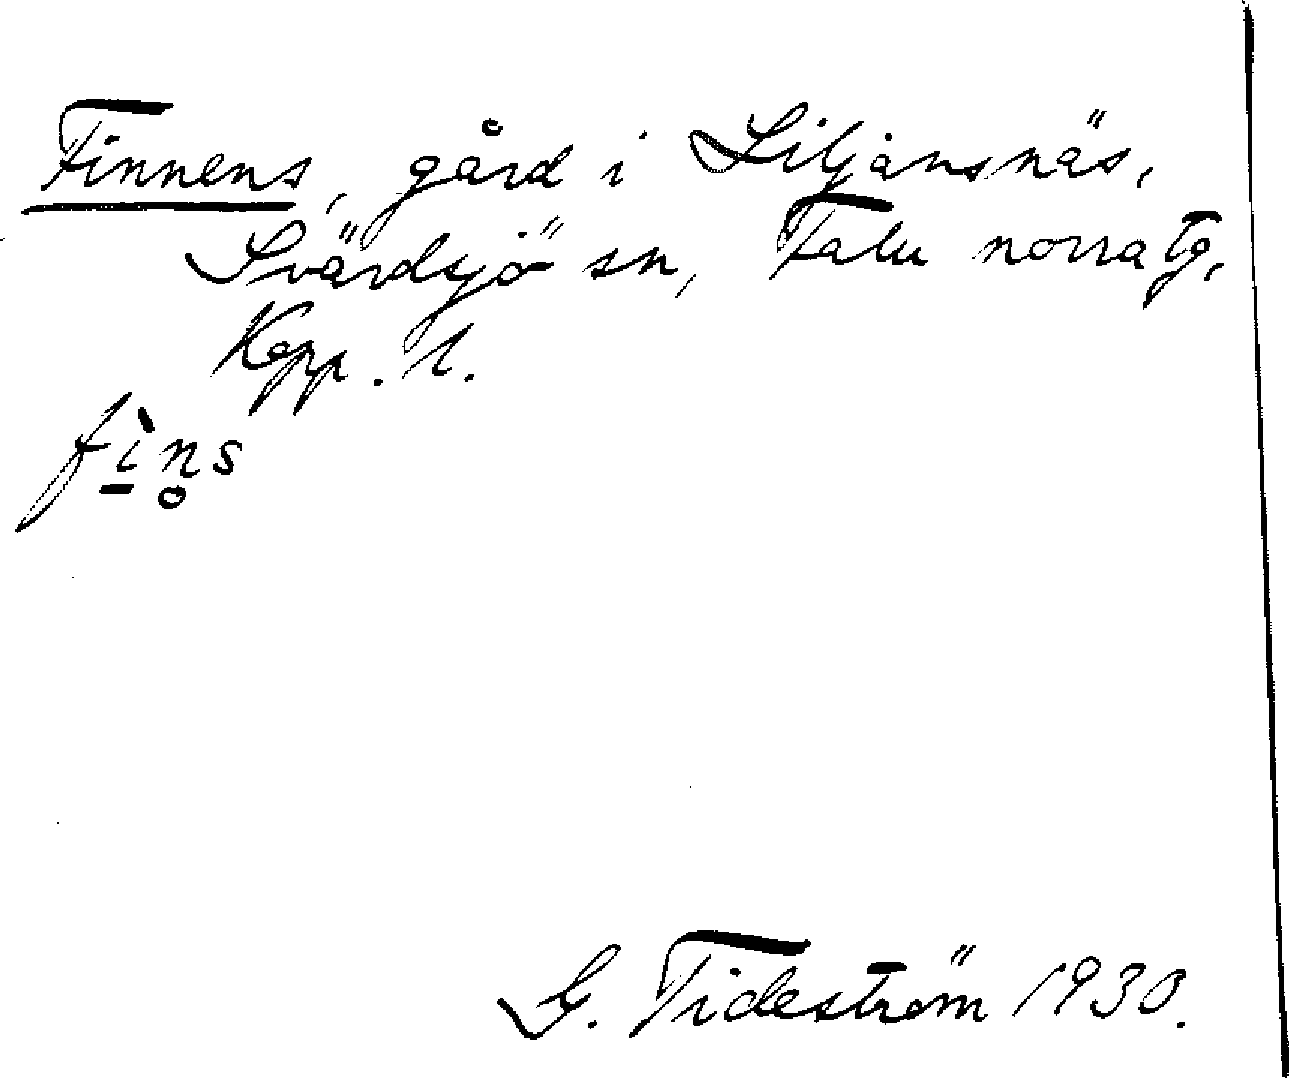 Finnens, gård i Liljansnäs,
Svärdsjö sn, Falu norra tg,
Kopp. l.
fì̱n̥s
G. Tideström 1930.